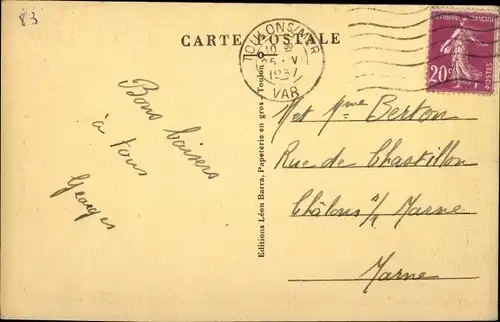 83
CARTE POSTALE
TOULON S/MER
10
25 · V
1937
VAR
20c
POSTES
Bons baisers
à tous
Georges
Editions Léon Barra, Papeterie en gros - Toulon
M et Mme Berton
Rue de Chastillon
Châlons s/ Marne
Marne